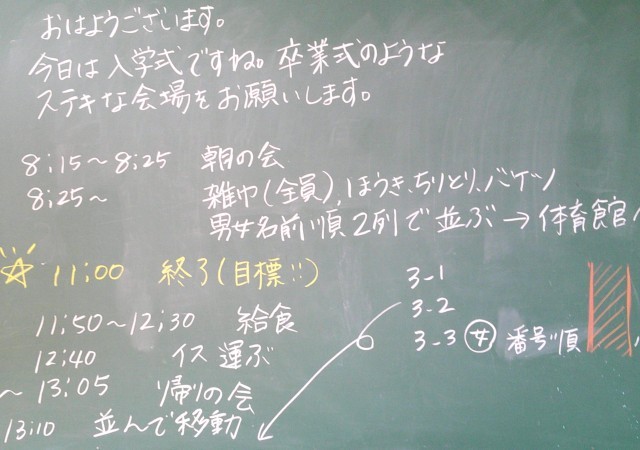 おはようございます。
今日は入学式ですね。卒業式のような
ステキな会場をお願いします。
8:15〜8:25 朝の会
8:25〜 雑巾(全員)、ほうき、ちりとり、バケツ
男女名前順2列で並ぶ→体育館
11:00 終了(目標!!)
11:50〜12:30 給食
12:40 イス運ぶ
〜13:05 帰りの会
13:10 並んで移動
3-1
3-2
3-3 女 番号順